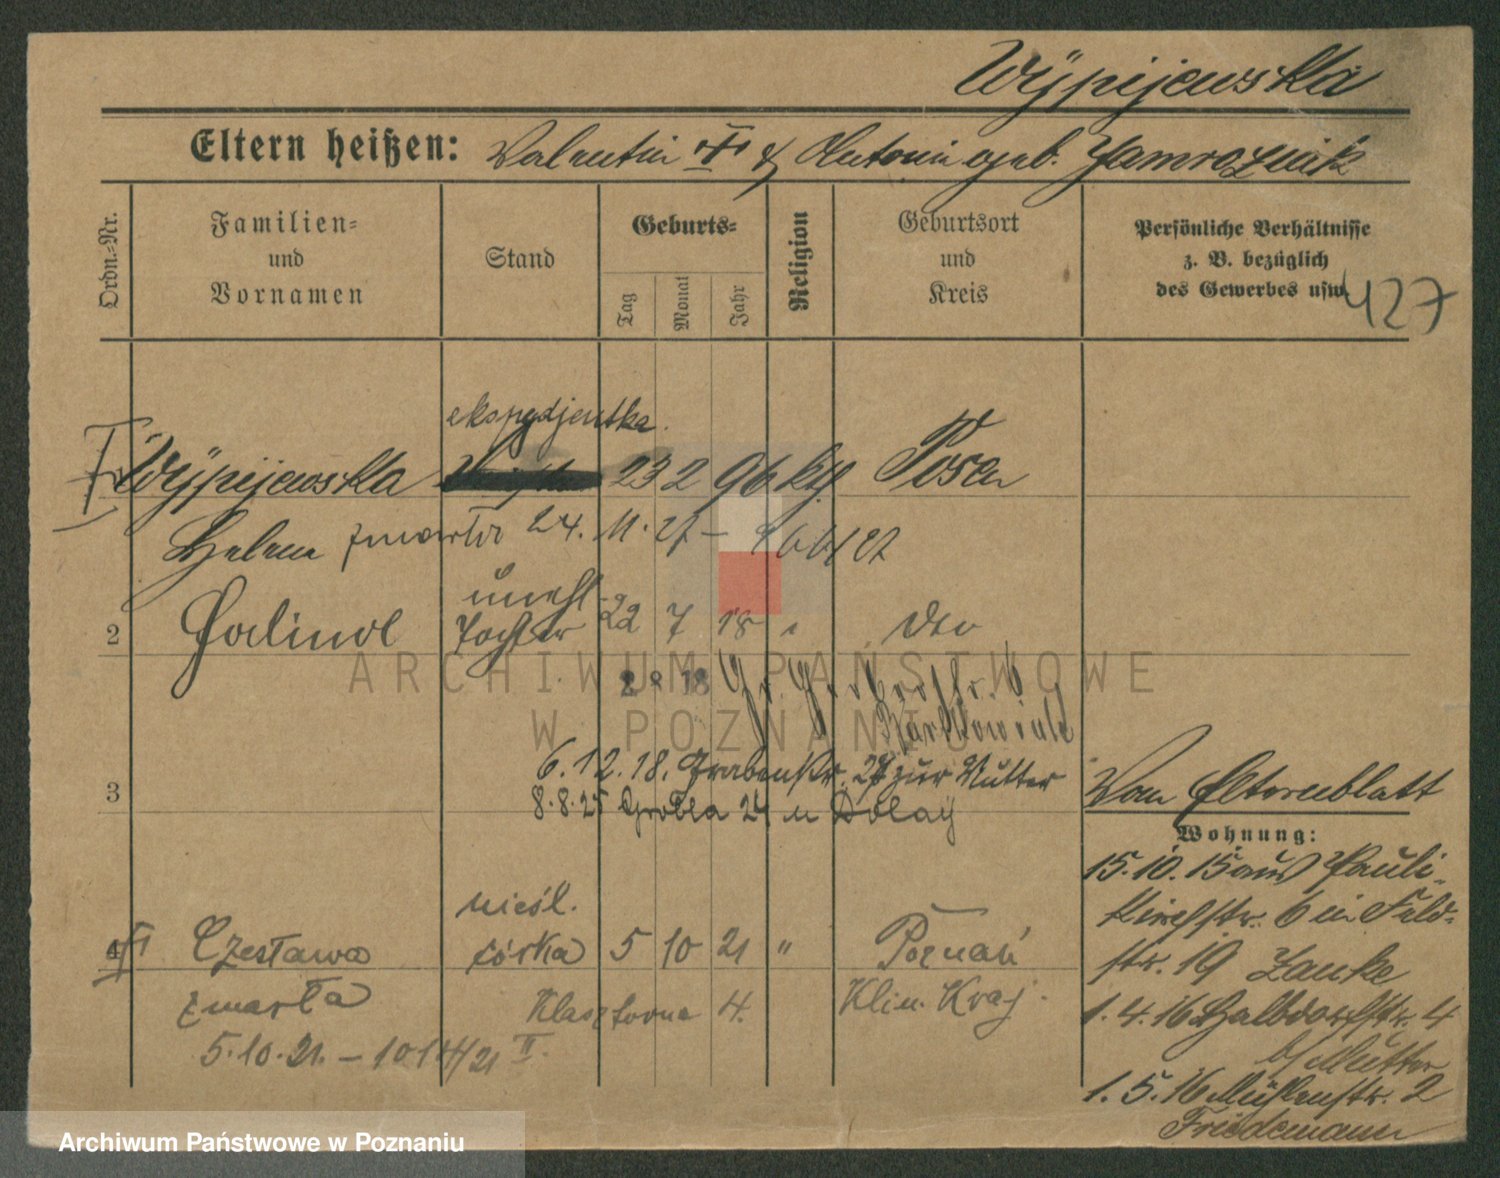 Wÿpijewska
Eltern heißen: Valentin † & Antonie geb. Jamroźniak
Ordn.=Nr.
Familien= und Vornamen
Stand
Geburts=
Tag
Monat
Jahr
Religion
Geburtsort und Kreis
Persönliche Verhältnisse
z. B. bezüglich
des Gewerbes usw.
427
ekspedjentka.
Wÿpijewska 23 2 96 kth Posen
Helene zmarła 24. 11. 27 –
unehl.
2 Halina Tochter 22 7 18 " dto
2 8 18 Gr. Gerberstr. 6
Bartkowiak
6. 12. 18. Grabenstr. 27 zur Mutter
3
8. 8. 25 Grobla 24 u Dolaty
Vom Elternblatt
Wohnung:
15. 10. 15 aus Pauli-
Kirchstr. 6 in Feld-
str. 19 Zanke
1. 4. 16 Halbdorfstr. 4
b/ Mutter
1. 5. 16 Mühlenstr. 2
Friedemann
nieśl.
4 Czesława córka 5 10 21 " Poznań
zmarła Klasztorna 4. Klin. Kraj.
5. 10. 21. –
ARCHIWUM PAŃSTWOWE
W POZNANIU
Archiwum Państwowe w Poznaniu